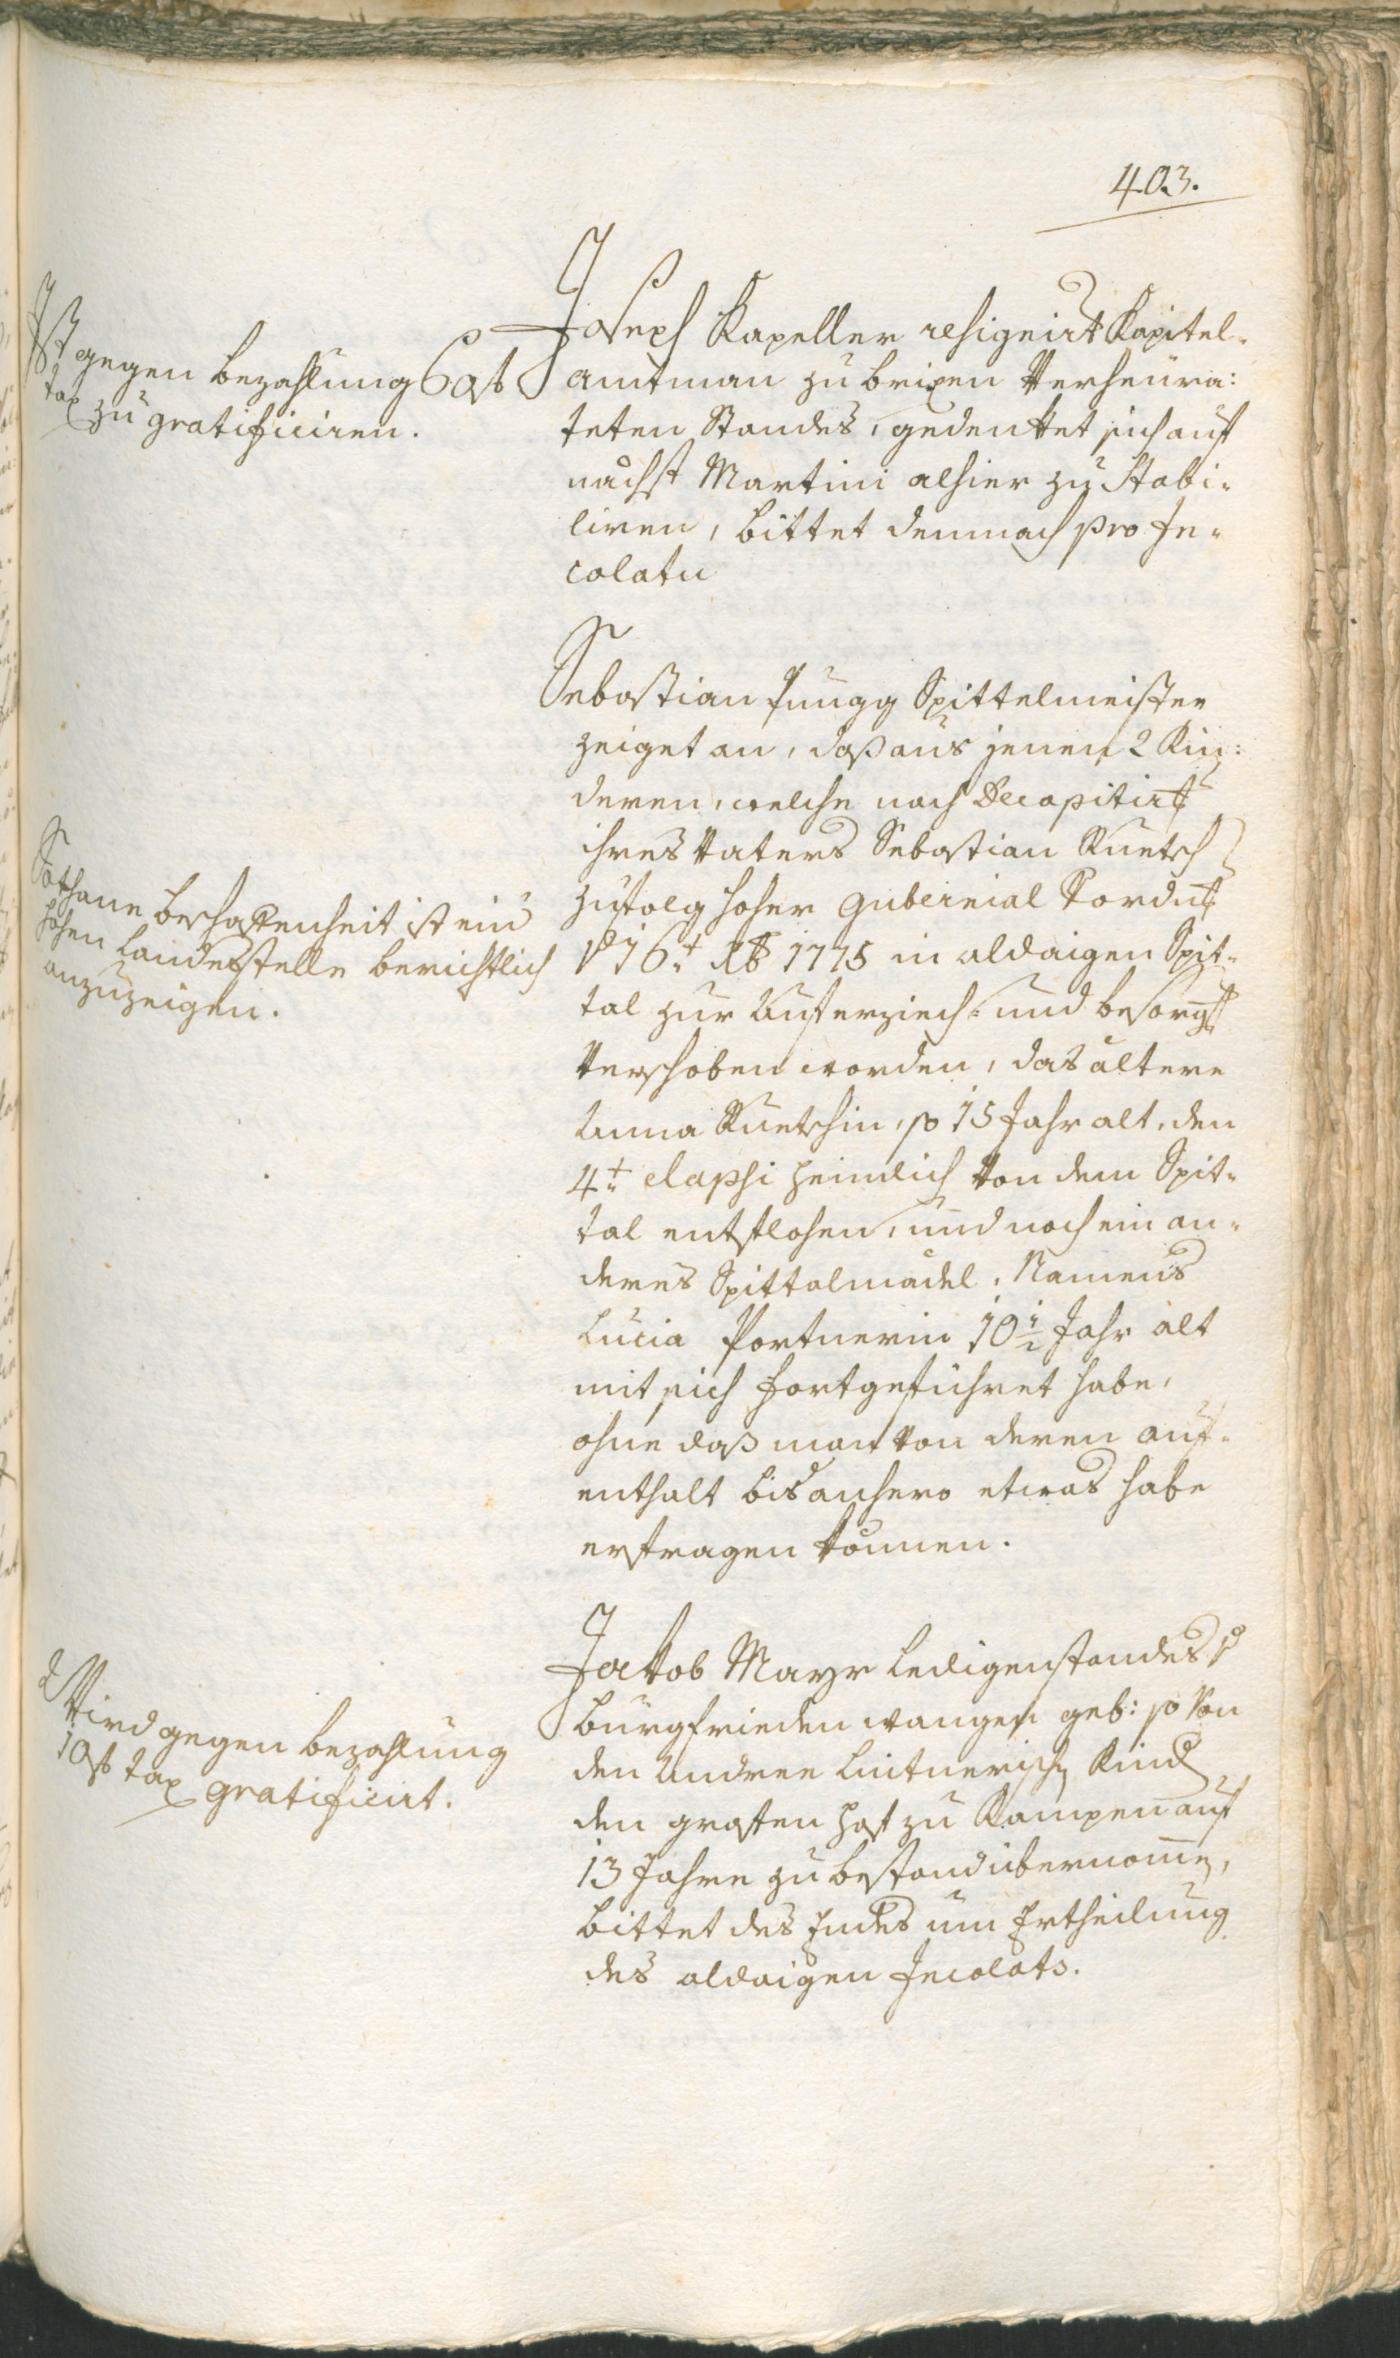 403.
Ist gegen bezahlung 6 f
tax zu gratificiren.
Joseph Kapeller resignirt Kapitel-
amtman zu brixen verheüra:
teten Standes, gedenket sich auf
nächst Martini alhier zu stabi-
liren, bittet demnach pro In-
colatu
Sothane beschaffenheit ist ein
hohen Landesstelle berichtlich
anzuzeigen.
Sebastian Püngg Spittelmeister
zeiget an, daß aus jenen 2 Kin:
deren, welche nach Decapitirt
ihres Vaters Sebastian Ruetsch
zufolg hoher Gubernial Vordng
16t 1775 in aldaigen Spit-
tal zur Auferziech- und besorg
verschoben worden, das ältere
Anna Ruetschin, so 15 Jahr alt, den
4t elapsi heimlich von dem Spit-
tal entflohen, und noch ein an-
deres Spittalmädel, Namens
Lucia Portnerin 10½ Jahr alt
mit sich fortgeführet habe,
ohne daß man von deren auf-
enthalt bis anhero etwas habe
erfragen können.
Wird gegen bezahlung
10 f tax gratificirt.
Jakob Mayr Ledigenstandes
Burgfrieden wangen geb: so von
den Andree Lintnerisch Kind
den grosten hof zu Kampen auf
13 Jahre zu bestand übernomen,
bittet des Endes um Ertheilung
des aldaigen Incolats.